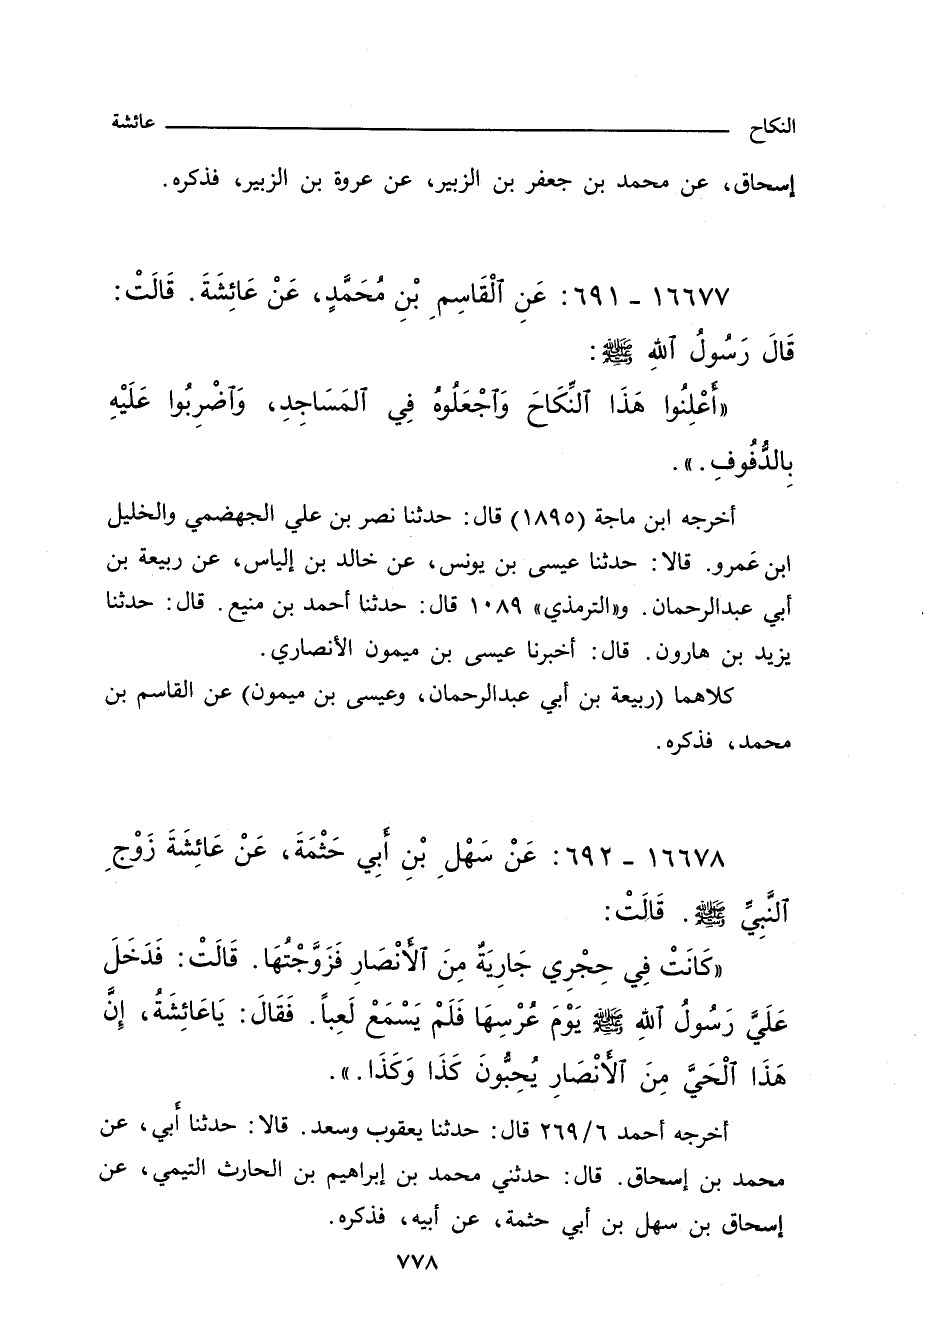 النكاح عائشة
إسحاق، عن محمد بن جعفر بن الزبير، عن عروة بن الزبير، فذكره.
١٦٦٧٧ - ٦٩١: عَنِ ٱلْقَاسِمِ بْنِ مُحَمَّدٍ، عَنْ عَائِشَةَ. قَالَتْ:
قَالَ رَسُولُ ٱللهِ ﷺ:
«أَعْلِنُوا هَذَا ٱلنِّكَاحَ وَٱجْعَلُوهُ فِي ٱلمَسَاجِدِ، وَٱضْرِبُوا عَلَيْهِ
بِالدُّفُوفِ.».
أخرجه ابن ماجة (١٨٩٥) قال: حدثنا نصر بن علي الجهضمي والخليل
ابن عَمرو. قالا: حدثنا عيسى بن يونس، عن خالد بن إلياس، عن ربيعة بن
أبي عبدالرحمان. و«الترمذي» ١٠٨٩ قال: حدثنا أحمد بن منيع. قال: حدثنا
يزيد بن هارون. قال: أخبرنا عيسى بن ميمون الأنصاري.
كلاهما (ربيعة بن أبي عبدالرحمان، وعيسى بن ميمون) عن القاسم بن
محمد، فذكره.
١٦٦٧٨ - ٦٩٢: عَنْ سَهْلِ بْنِ أَبِي حَثْمَةَ، عَنْ عَائِشَةَ زَوْجِ
ٱلنَّبِيِّ ﷺ. قَالَتْ:
«كَانَتْ فِي حِجْرِي جَارِيَةٌ مِنَ ٱلأَنْصَارِ فَزَوَّجْتُهَا. قَالَتْ: فَدَخَلَ
عَلَيَّ رَسُولُ ٱللهِ ﷺ يَوْمَ عُرْسِهَا فَلَمْ يَسْمَعْ لَعِباً. فَقَالَ: يَاعَائِشَةُ، إِنَّ
هَذَا ٱلْحَيَّ مِنَ ٱلأَنْصَارِ يُحِبُّونَ كَذَا وَكَذَا.».
أخرجه أحمد ٢٦٩/٦ قال: حدثنا يعقوب وسعد. قالا: حدثنا أَبي، عن
محمد بن إسحاق. قال: حدثني محمد بن إبراهيم بن الحارث التيمي، عن
إسحاق بن سهل بن أبي حثمة، عن أبيه، فذكره.
٧٧٨